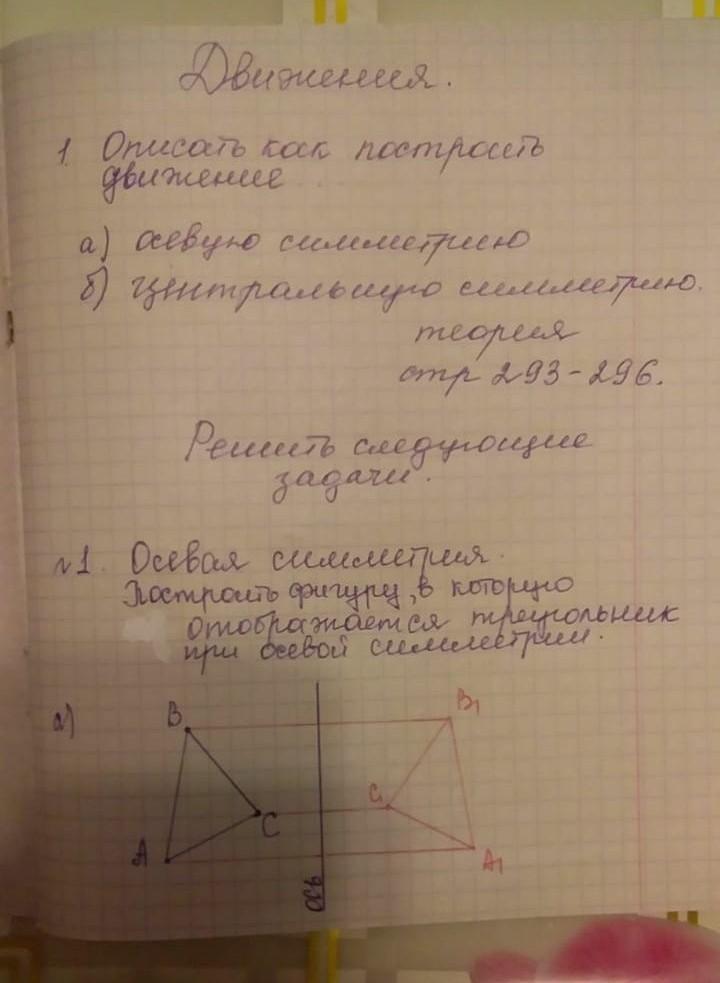 Движения.
1 Описать как построить
движение
а) осевую симметрию
б) центральную симметрию.
теория
стр 293-296.
Решить следующие
задачи.
№1. Осевая симметрия.
Построить фигуру, в которую
отображается треугольник
при осевой симметрии.
а)
B
B1
C
C1
A
A1
ось